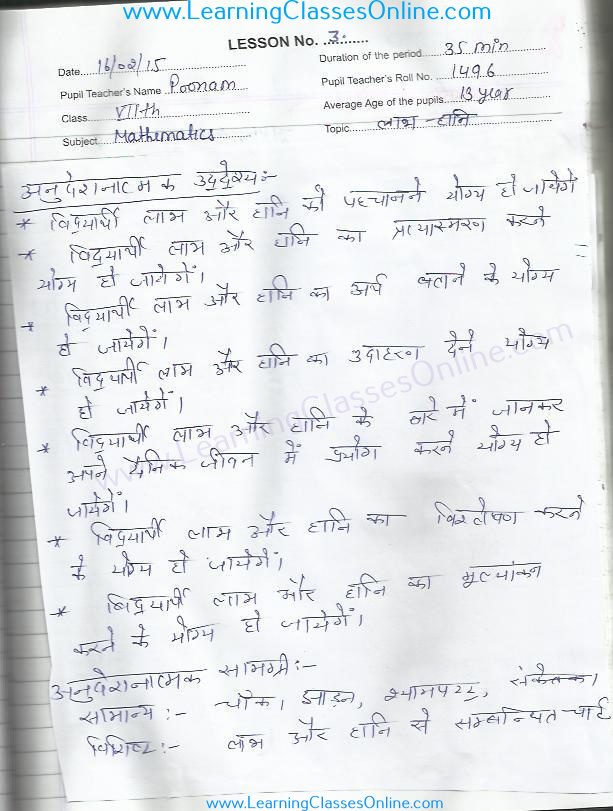 www.LearningClassesOnline.com
LESSON No. 3.
Date 16/02/15 Duration of the period 35 min
Pupil Teacher's Name Poonam Pupil Teacher's Roll No. 1496
Class VIIth Average Age of the pupils 13 year
Subject Mathematics Topic लाभ - हानि
अनुदेशनात्मक उद्देश्य:-
* विद्यार्थी लाभ और हानि को पहचानने योग्य हो जायेगें
* विद्यार्थी लाभ और हानि का प्रत्यास्मरण करने
योग्य हो जायेगें।
* विद्यार्थी लाभ और हानि का अर्थ बताने के योग्य
हो जायेगें।
* विद्यार्थी लाभ और हानि का उदाहरण देने योग्य
हो जायेगें।
* विद्यार्थी लाभ और हानि के बारे में जानकर
अपने दैनिक जीवन में प्रयोग करने योग्य हो
जायेगें।
* विद्यार्थी लाभ और हानि का विश्लेषण करने
के योग्य हो जायेगें।
* विद्यार्थी लाभ और हानि का मूल्यांकन
करने के योग्य हो जायेगें।
अनुदेशनात्मक सामग्री:-
सामान्य:- चॉक, झाड़न, श्यामपट्ट, संकेतक।
विशिष्ट:- लाभ और हानि से सम्बन्धित चार्ट
www.LearningClassesOnline.com
www.LearningClassesOnline.com